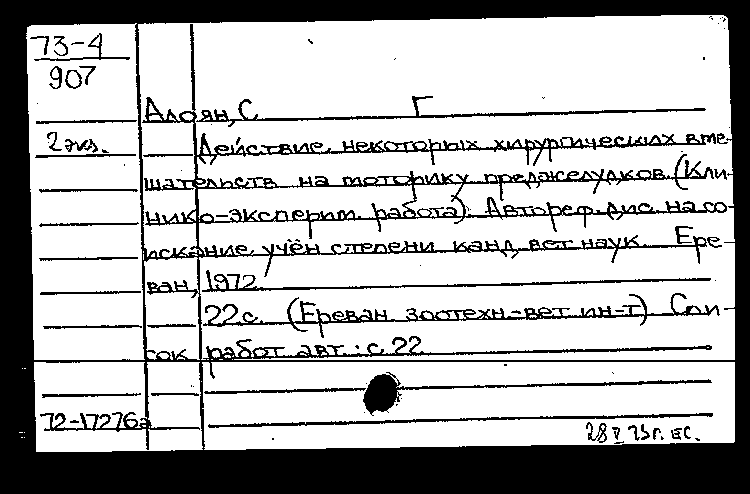 73-4
907
Алоян, С Г
2 экз.
Действие некоторых хирургических вме-
шательств на моторику преджелудков. (Кли-
нико-эксперим. работа). Автореф. дис. на со-
искание учён степени канд. вет. наук. Ере-
ван, 1972.
22 с. (Ереван. зоотехн.-вет. ин-т) Спи-
сок работ авт.: с. 22
72-17276а
28 V 73 г. ЕС.